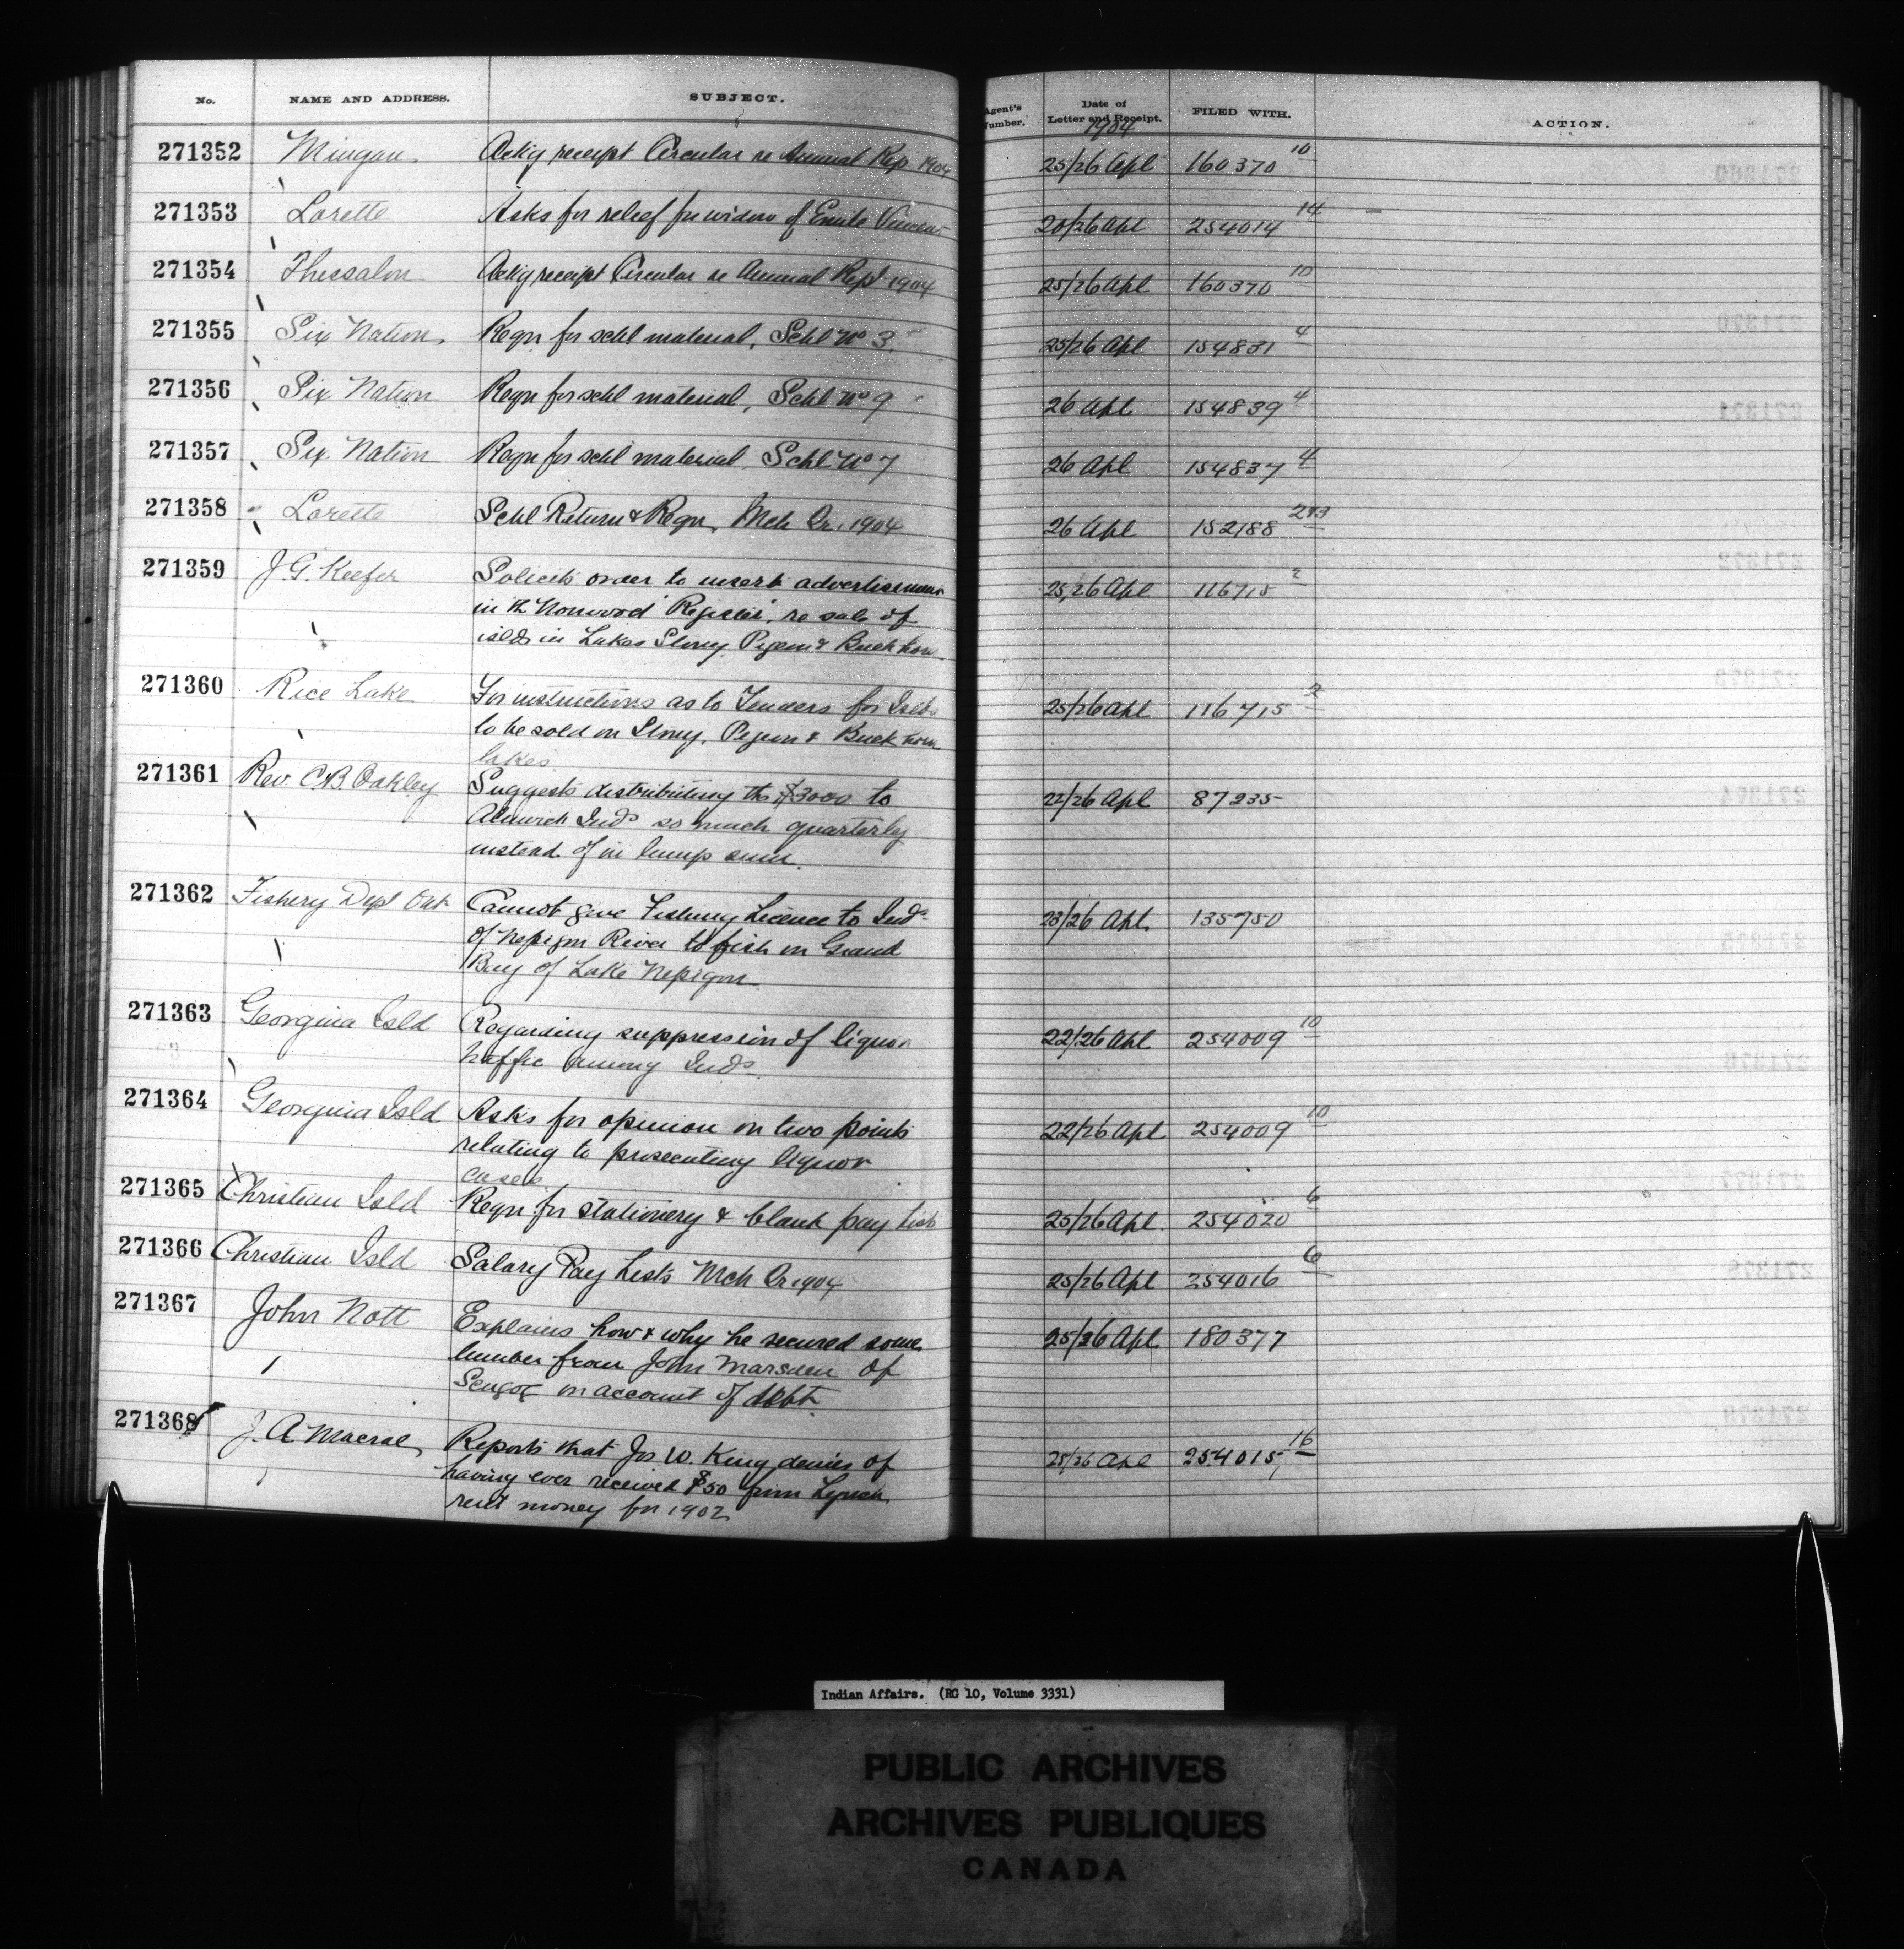 No. NAME AND ADDRESS. SUBJECT. Agent's Number. Date of Letter and Receipt. FILED WITH. ACTION.
1904
271352 Mingan Ackg receipt Circular re Annual Rep 1904 25/26 Apl 160370 10
271353 Lorette Asks for relief for widow of Emile Vincent 20/26 Apl 254014 14
271354 Thessalon Ackg receipt Circular re Annual Rept 1904 25/26 Apl 160370 10
271355 Six Nation Reqn for schl material, Schl No 3 25/26 Apl 154831 4
271356 Six Nation Reqn for schl material, Schl No 9 26 Apl 154839 4
271357 Six Nation Reqn for schl material, Schl No 7 26 Apl 154837 4
271358 Lorette Schl Return & Reqn, Mch Qr. 1904 26 Apl 152188
271359 J. G. Keefer Solicits order to insert advertisement 25/26 Apl 116715 2
in the Norwood 'Register', re sale of
islds in Lakes Stony, Pigeon & Buckhorn
271360 Rice Lake For instructions as to Tenders for Islds 25/26 Apl 116715 2
to be sold in Stony, Pigeon & Buckhorn
lakes
271361 Rev. C.B. Oakley Suggests distributing the $3000 to 22/26 Apl 87235
Alnwick Inds so much quarterly
instead of in lump sum.
271362 Fishery Dept Ont Cannot give Fishing Licence to Inds 23/26 Apl. 135750
of Nepigon River to fish in Grand
Bay of Lake Nepigon
271363 Georgina Isld Regarding suppression of liquor 22/26 Apl 254009 10
traffic among Inds
271364 Georgina Isld Asks for opinion on two points 22/26 Apl 254009 10
relating to prosecuting liquor
cases
271365 Christian Isld Reqn for stationery & blank pay lists 25/26 Apl 254020 6
271366 Christian Isld Salary Pay Lists Mch Qr 1904 25/26 Apl 254016 6
271367 John Nott Explains how & why he secured some 25/26 Apl 180377
lumber from John Marsden of
Scugog on account of debt
271368 J. A. Macrae Reports that Jos W. King denies of 25/26 Apl 254015 16
having ever received $50 from Lynch
rent money for 1902
Indian Affairs. (RG 10, Volume 3331)
PUBLIC ARCHIVES
ARCHIVES PUBLIQUES
CANADA